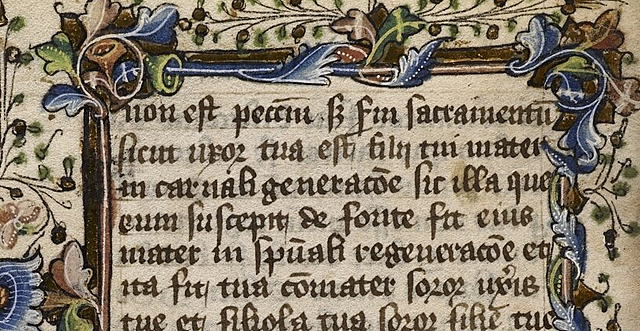 non est peccm̄. sʒ s̄m sacramentū
sicut uxor tua est filij tui mater
in carnali generacōe sic illa que
eum suscepit de fonte fit eius
mater in sp̄uali regeneracōe et
ita fit tua cōmater soror ux̄is
tue et filiola tua soror filie tue